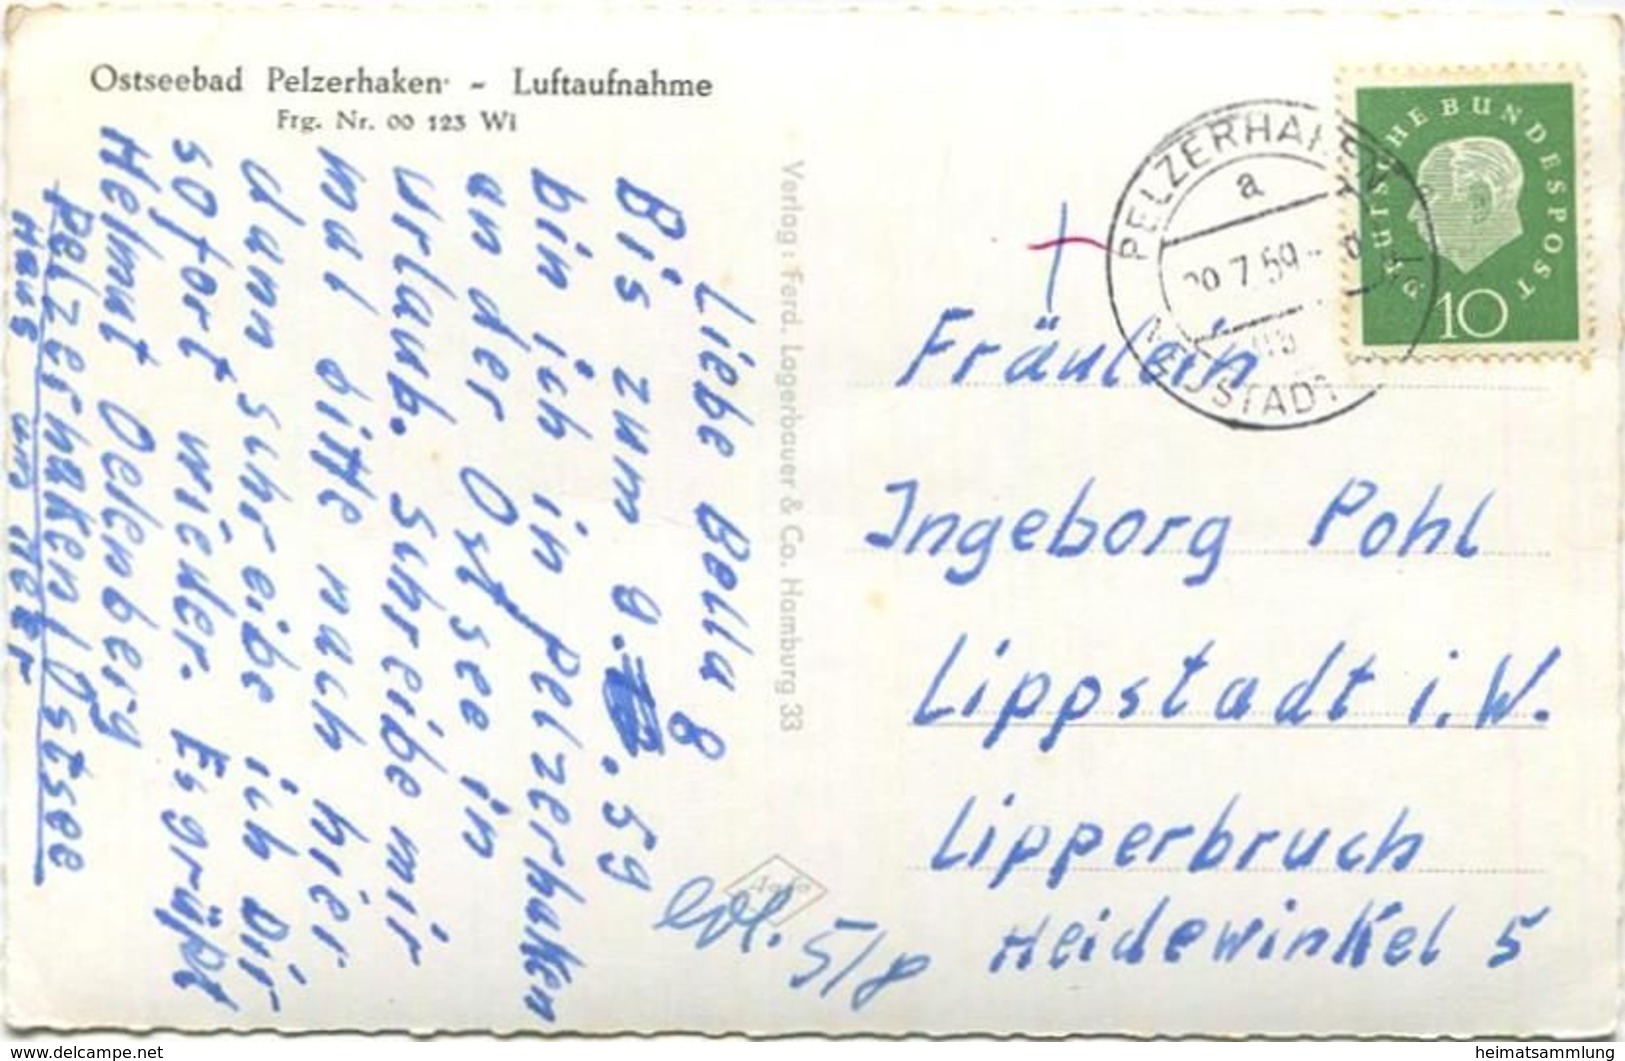 Ostseebad Pelzerhaken - Luftaufnahme
Frg. Nr. 00 123 Wi
Liebe Bella 8
Bis zum 9. .59
bin ich in Pelzerhaken
an der Ostsee in
Urlaub. Schreibe mir
mal bitte nach hier
dann schreibe ich Dir
sofort wieder. Es grüßt
Helmut Oelenberg
Pelzerhaken/Ostsee
Haus am Meer
Verlag: Ferd. Lagerbauer & Co. Hamburg 33
Agfa
erl. 5/8
PELZERHAKEN
a
20.7.59
NEUSTADT
DEUTSCHE BUNDESPOST
10
Fräulein
Ingeborg Pohl
Lippstadt i. W.
Lipperbruch
Heidewinkel 5
www.delcampe.net
heimatsammlung